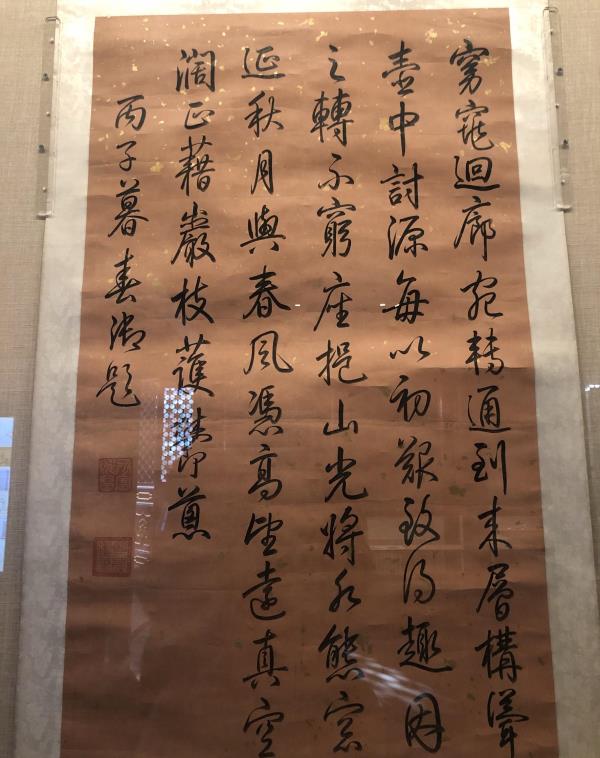 窈窕迴廊宛轉通到来層構聳
壺中討源每以初艱致得趣因
之轉不窮座挹山光將水態窓
延秋月與春風憑高望遠真空
濶正藉巖枝護蔥
丙子暮春御題